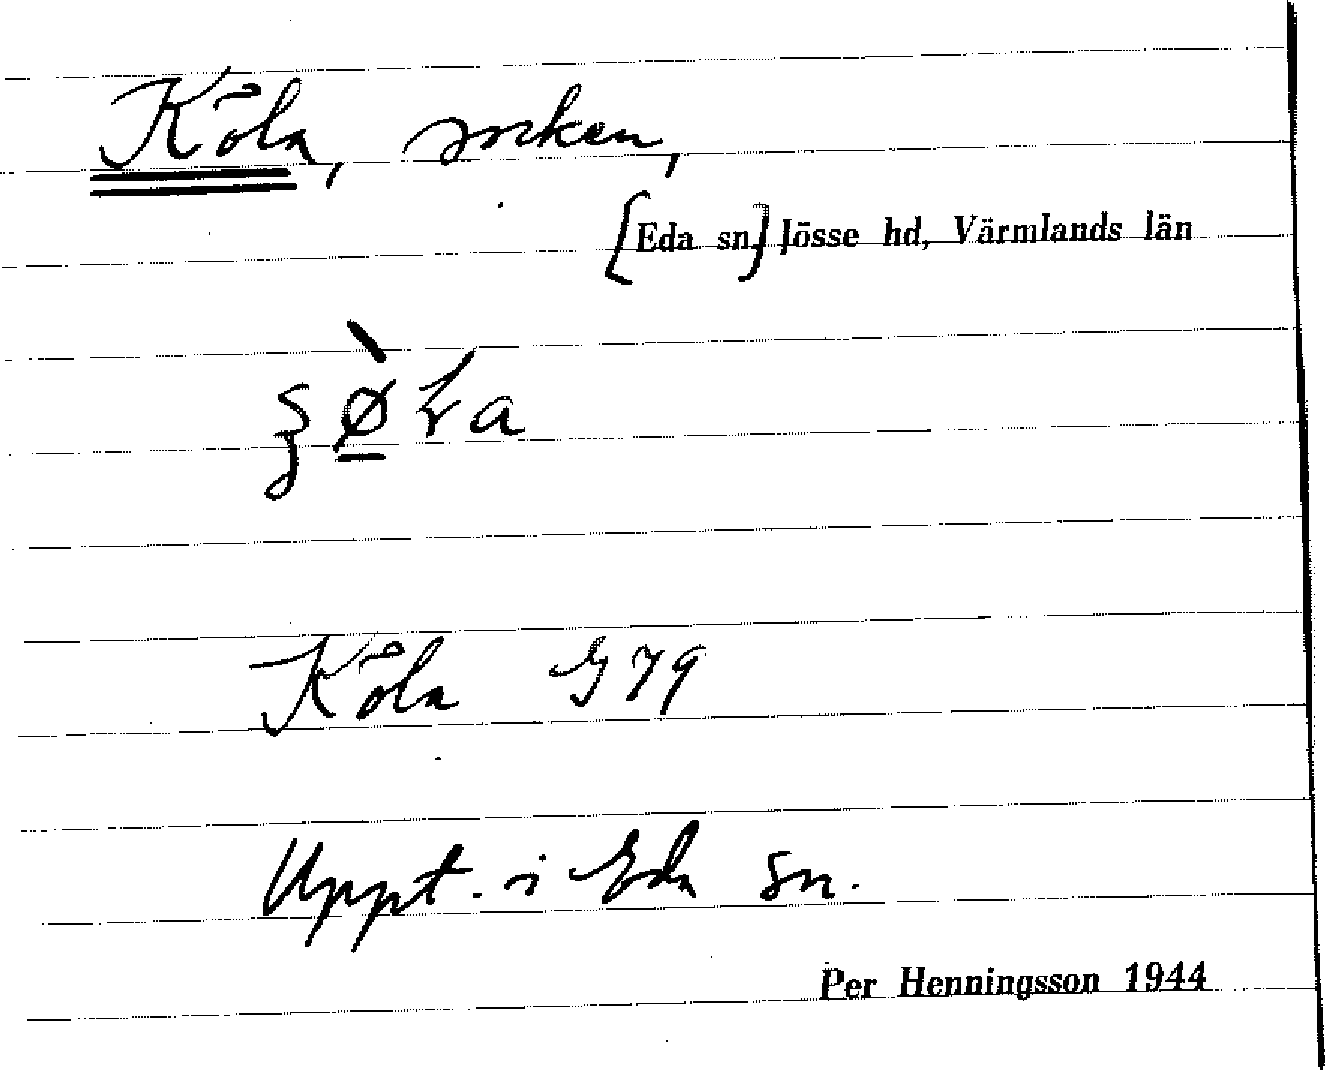 Köla, socken,
[Eda sn] Jösse hd, Värmlands län
Köla G 79
Uppt. i Eda sn.
Per Henningsson 1944